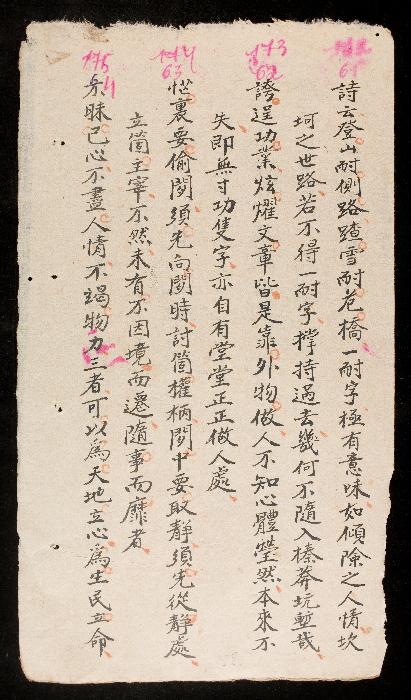 61
詩云登山耐側路踏雪耐危橋一耐字極有意味如傾險之人情坎
坷之世路若不得一耐字撑持過去幾何不隨入榛莽坑塹哉
173
62
誇逞功業炫耀文章皆是靠外物做人不知心體瑩然本來不
失即無寸功隻字亦自有堂堂正正做人處
174
63
忙裏要偷閑須先向閑時討箇欛柄閙中要取靜須先從靜處
立箇主宰不然未有不因境而遷隨事而靡者
175
不昧已心不盡人情不竭物力三者可以為天地立心為生民立命